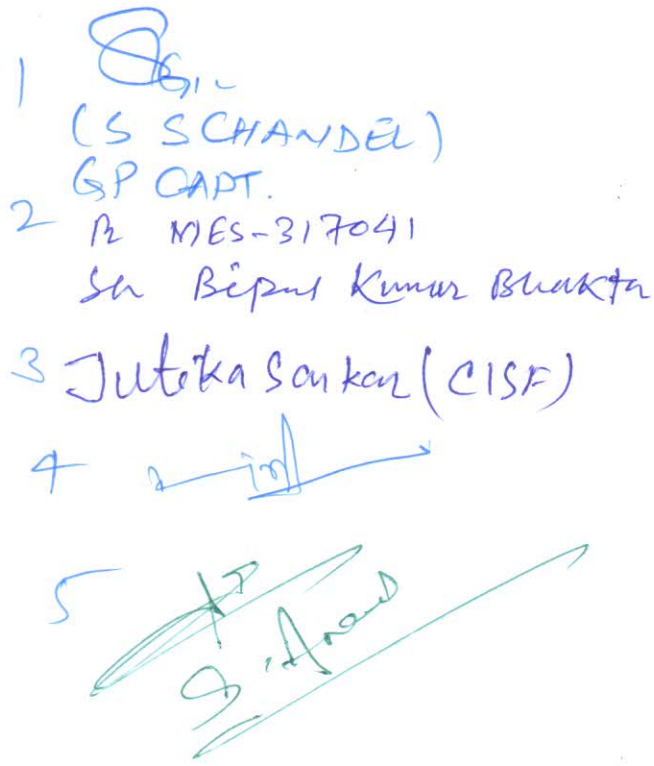 1
(S S CHANDEL)
GP CAPT.
2 MES-317041
Sh Bipul Kumar Bhakta
3 Jutika Sarkar (CISF)
4
5
S. Anand